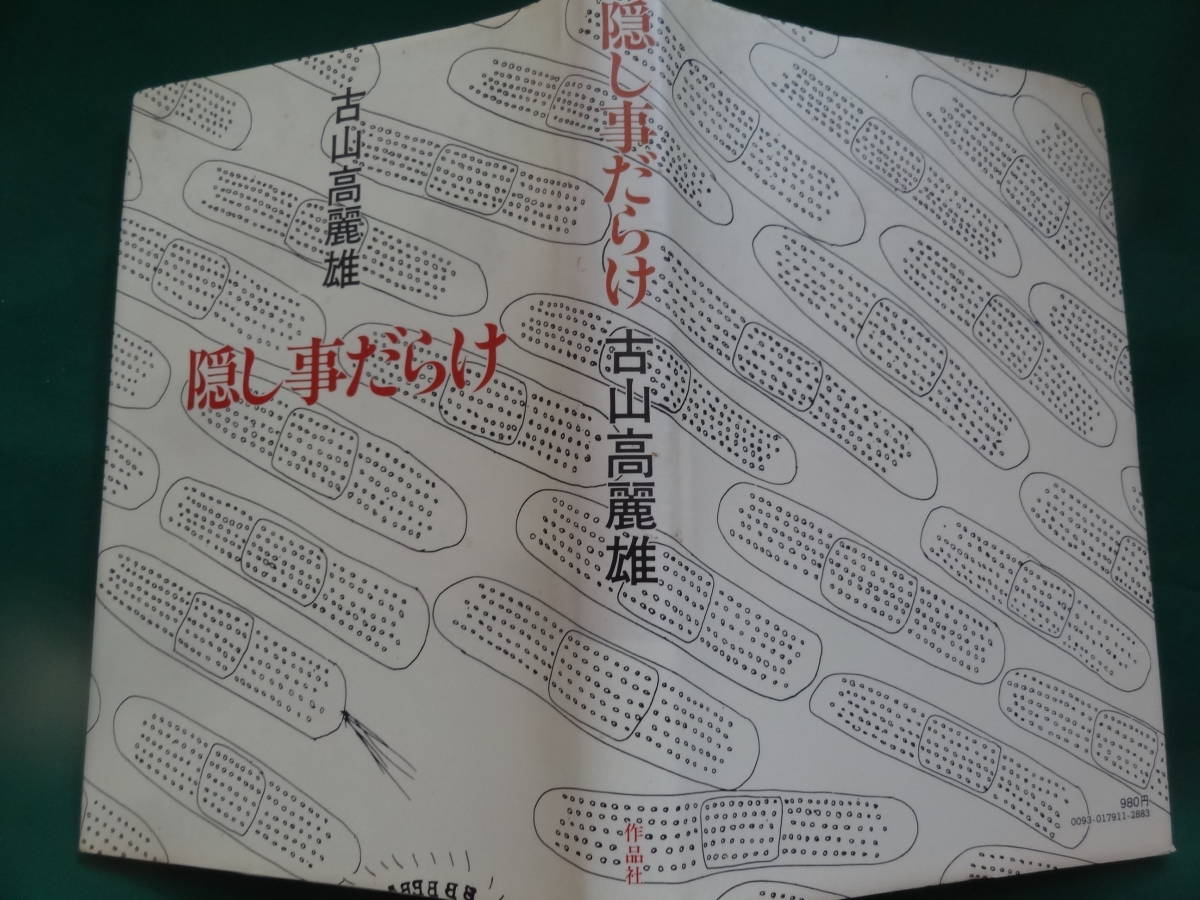 古山高麗雄
隠し事だらけ
隠し事だらけ 古山高麗雄
作品社
980円
0093-017911-2883